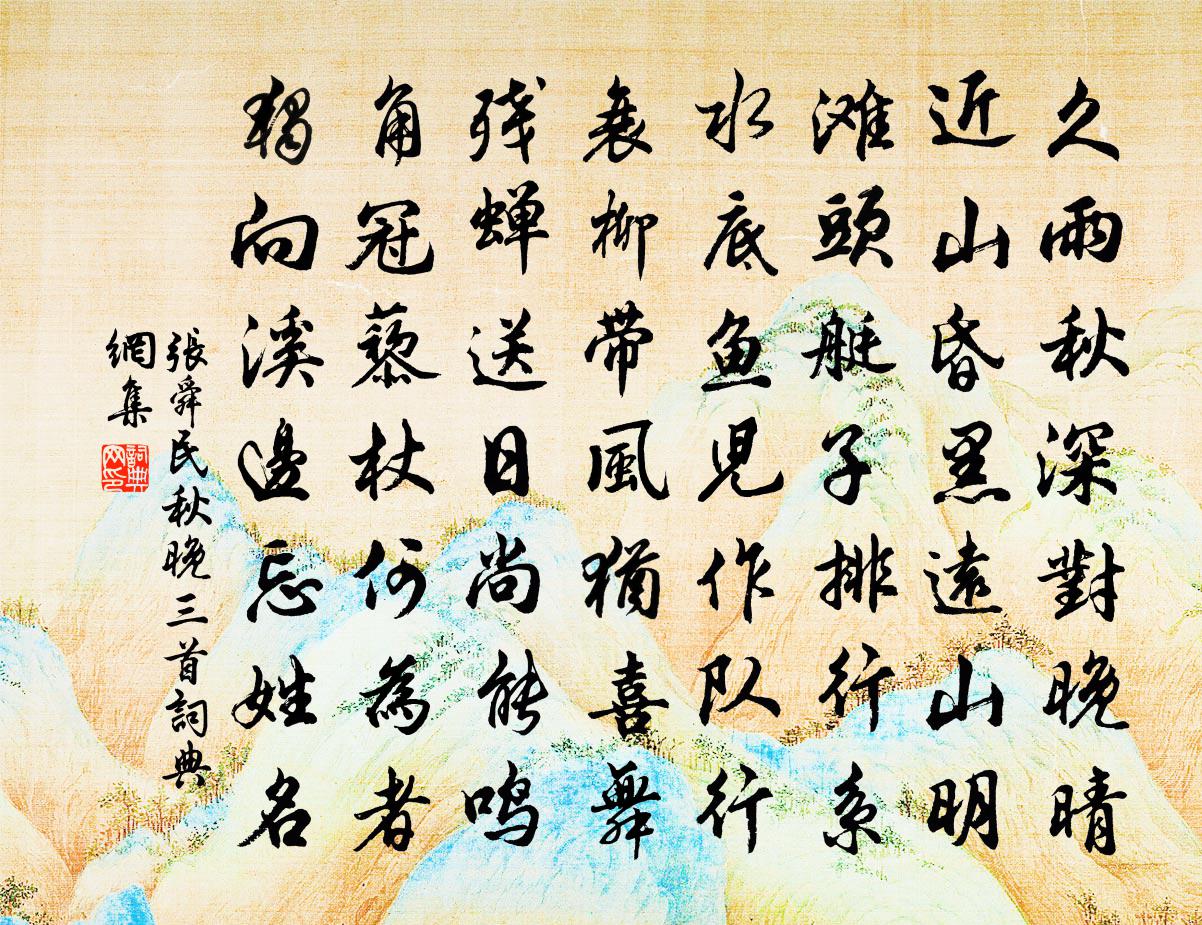 久雨秋深對晚晴
近山昏黑遠山明
滩頭艇子排行系
水底鱼兒作队行
衰柳带風猶喜舞
残蝉送日尚能鸣
角冠藜杖何為者
独向溪邊忘姓名
張舜民秋晚三首詞典
網集
詞典
网印